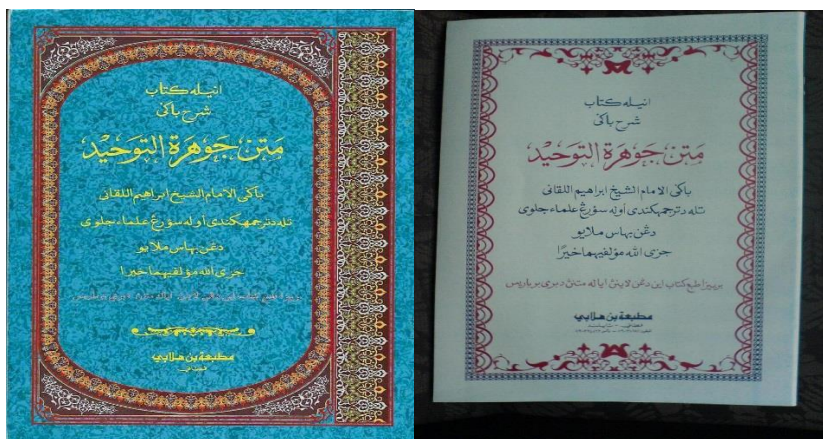 انيله كتاب
شرح باݢي
متن جوهرة التوحيد
باݢي الامام الشيخ ابراهيم اللقاني
تله دترجمهكندي أوله سؤرڠ علماء جاوي
دڠن بهاس ملايو
جزى الله مؤلفيهما خيرا
مطبعة بن هلابي
انيله كتاب
شرح باݢي
متن جوهرة التوحيد
باݢي الامام الشيخ ابراهيم اللقاني
تله دترجمهكندي أوله سؤرڠ علماء جاوي
دڠن بهاس ملايو
جزى الله مؤلفيهما خيرًا
بربيزا طبع كتاب اين دڠن لاينڽ اياله متنڽ دبري برباريس
مطبعة بن هلابي